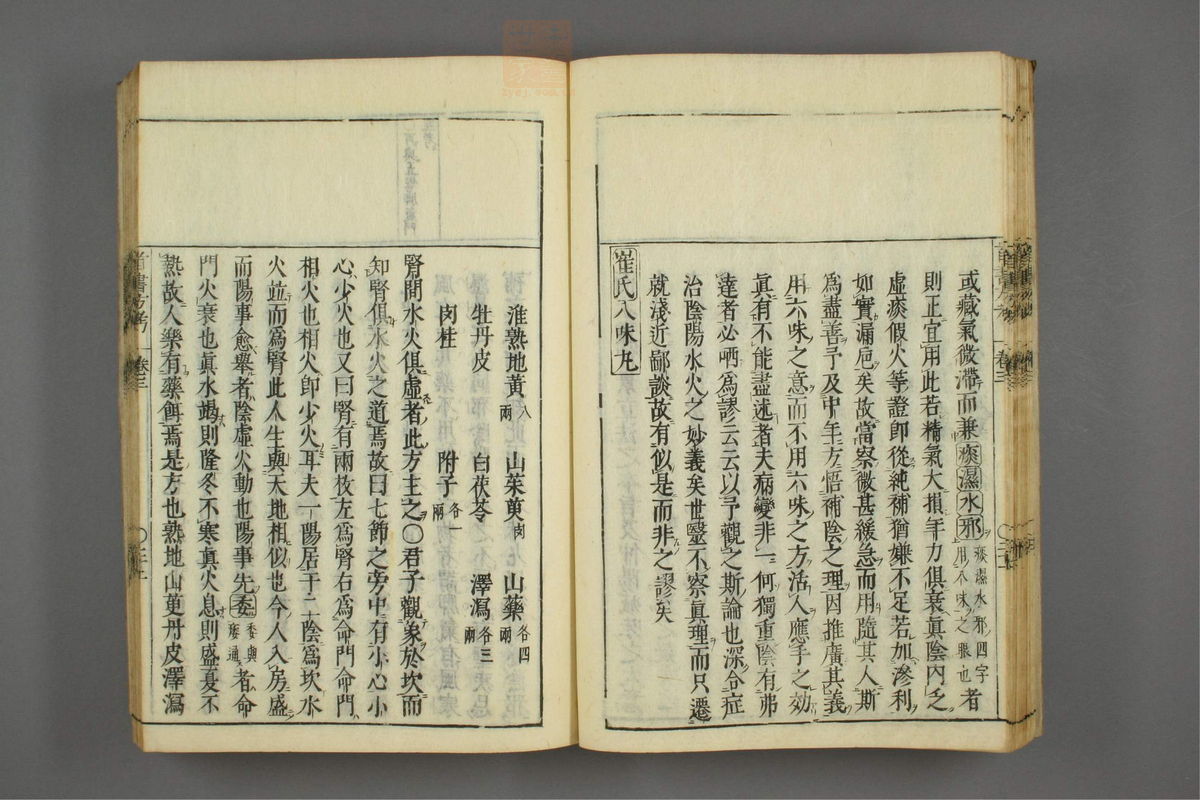 或藏氣微滯而兼痰濕水邪痰濕水邪四字用六味之眼也者
則正宜用此若精氣大損年力俱衰眞陰內乏
虛痰假火等證即從純補猶嫌不足若加滲利
如實漏巵矣故當察微甚緩急而用隨其人斯
爲盡善予及中年方悟補陰之理因推廣其義
用六味之意而不用六味之方活人應手之効
眞有不能盡述者夫病變非一何獨重陰有弗
達者必哂爲謬云云以予觀之斯論也深合症
治陰陽水火之妙義矣世醫不察眞理而只遷
就淺近鄙談故有似是而非之謬矣
崔氏八味丸
淮熟地黃八兩 山茱萸肉 山藥各四兩
牡丹皮 白茯苓 澤瀉各三兩
肉桂 附子各一兩
腎間水火俱虛者此方主之○君子觀象於坎而
知腎俱水火之道焉故曰七節之旁中有小心小
心少火也又曰腎有兩枚左爲腎右爲命門命門
相火也相火即少火耳夫一陽居于二陰爲坎水
火竝而爲腎此人生與天地相似也今人入房盛
而陽事愈舉者陰虛火動也陽事先委委與痿通者命
門火衰也眞水竭則隆冬不寒眞火息則盛夏不
熱故人樂有藥餌焉是方也熟地山萸丹皮澤瀉
卷三
卷三